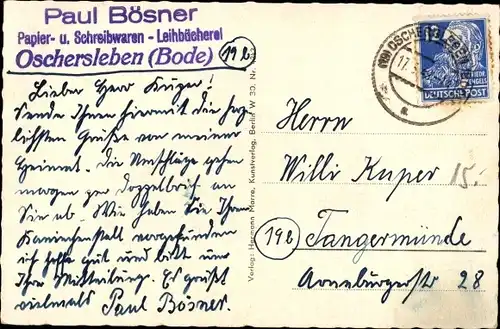 Paul Bösner
Papier- u. Schreibwaren - Leihbücherei
Oschersleben (Bode)
19b
Lieber Herr Kuper!
Sende Ihnen hiermit die herz-
lichsten Grüße von meiner
Heimat. Die Umschläge gehen
morgen per Doppelbrief an
Sie ab. Wie haben Sie Ihren
Kaninchenstall vorgefunden
ich hoffe gut und bitte um
Ihre Mitteilung. Es grüßt
vielmals Paul Bösner.
Verlag: Hermann Marre, Kunstverlag, Berlin W 30, Nr.
(19b) OSCHERSLEBEN
17
a
12
ENGELS
DEUTSCHE POST
Herrn
Willi Kuper
15.-
19b
Tangermünde
Arneburgerstr 28